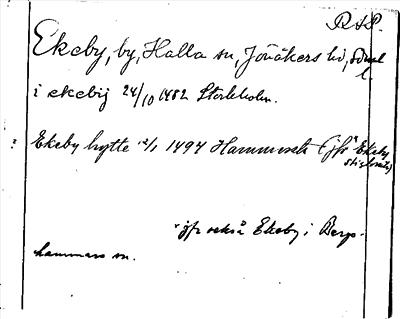 R.A.P.
Ekeby, by, Halla sn, Jönåkers hd, Söd. l.
i ekebij 24/10 1482 Stockholm.
Ekeby hytte 12/1 1494 (jfr Ekeby
jfr också Ekeby i Bergs-
hammars sn.